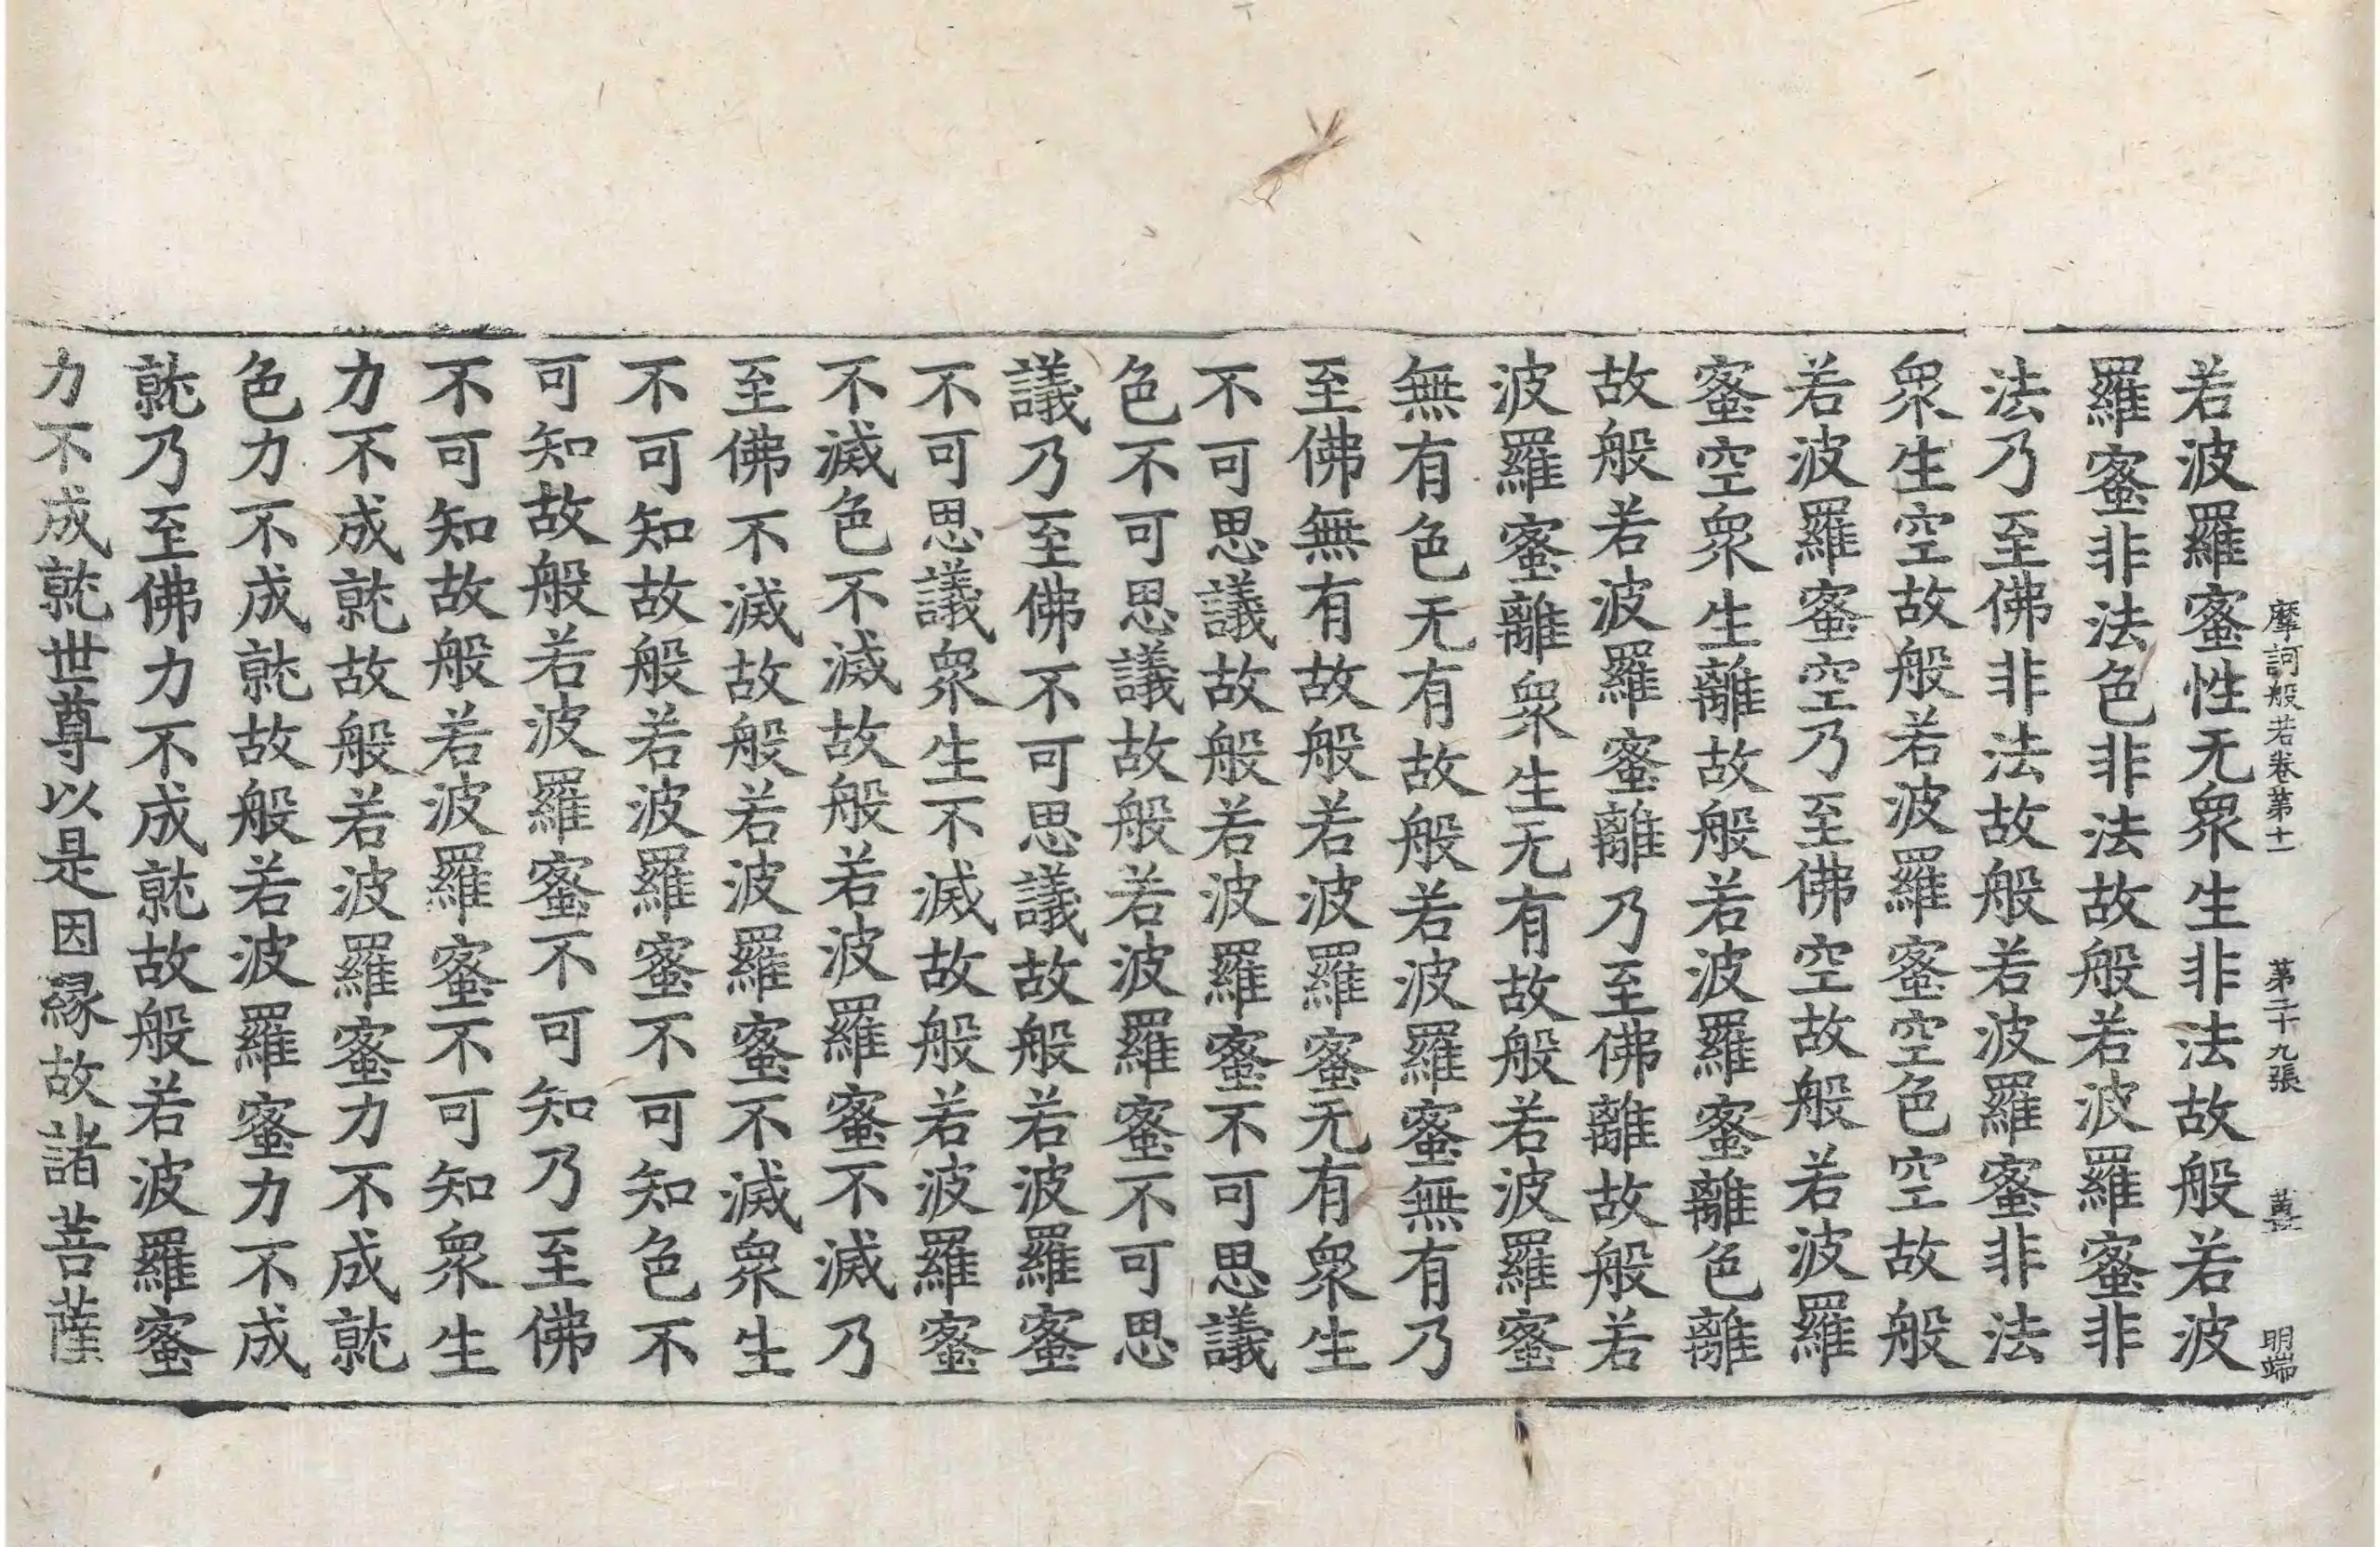 摩訶般若卷第十一 第二十九張 薑 明端
若波羅蜜性无衆生非法故般若波
羅蜜非法色非法故般若波羅蜜非
法乃至佛非法故般若波羅蜜非法
衆生空故般若波羅蜜空色空故般
若波羅蜜空乃至佛空故般若波羅
蜜空衆生離故般若波羅蜜離色離
故般若波羅蜜離乃至佛離故般若
波羅蜜離衆生无有故般若波羅蜜
無有色无有故般若波羅蜜無有乃
至佛無有故般若波羅蜜无有衆生
不可思議故般若波羅蜜不可思議
色不可思議故般若波羅蜜不可思
議乃至佛不可思議故般若波羅蜜
不可思議衆生不滅故般若波羅蜜
不滅色不滅故般若波羅蜜不滅乃
至佛不滅故般若波羅蜜不滅衆生
不可知故般若波羅蜜不可知色不
可知故般若波羅蜜不可知乃至佛
不可知故般若波羅蜜不可知衆生
力不成就故般若波羅蜜力不成就
色力不成就故般若波羅蜜力不成
就乃至佛力不成就故般若波羅蜜
力不成就世尊以是因緣故諸菩薩